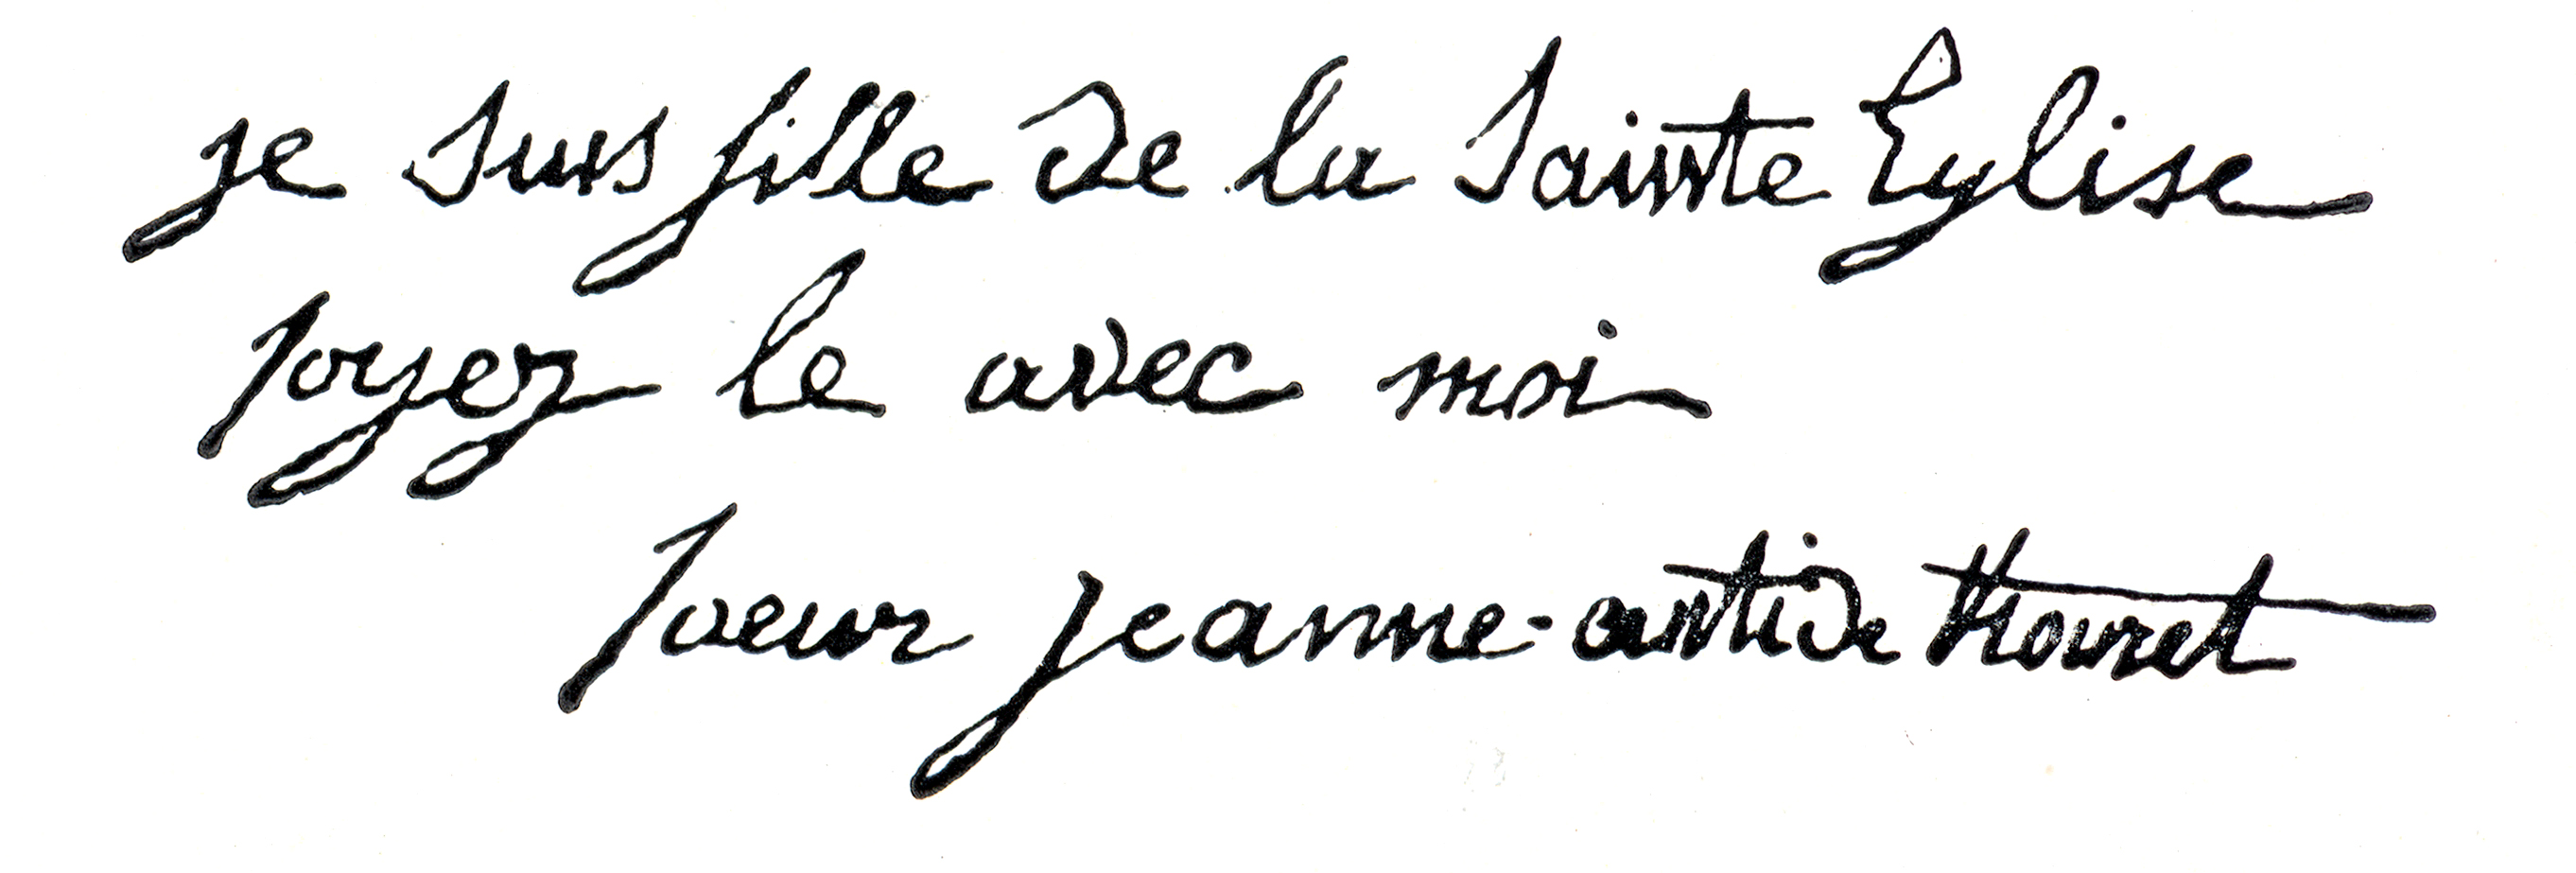 je suis fille de la Sainte Eglise
soyez le avec moi
soeur jeanne-antide thouret